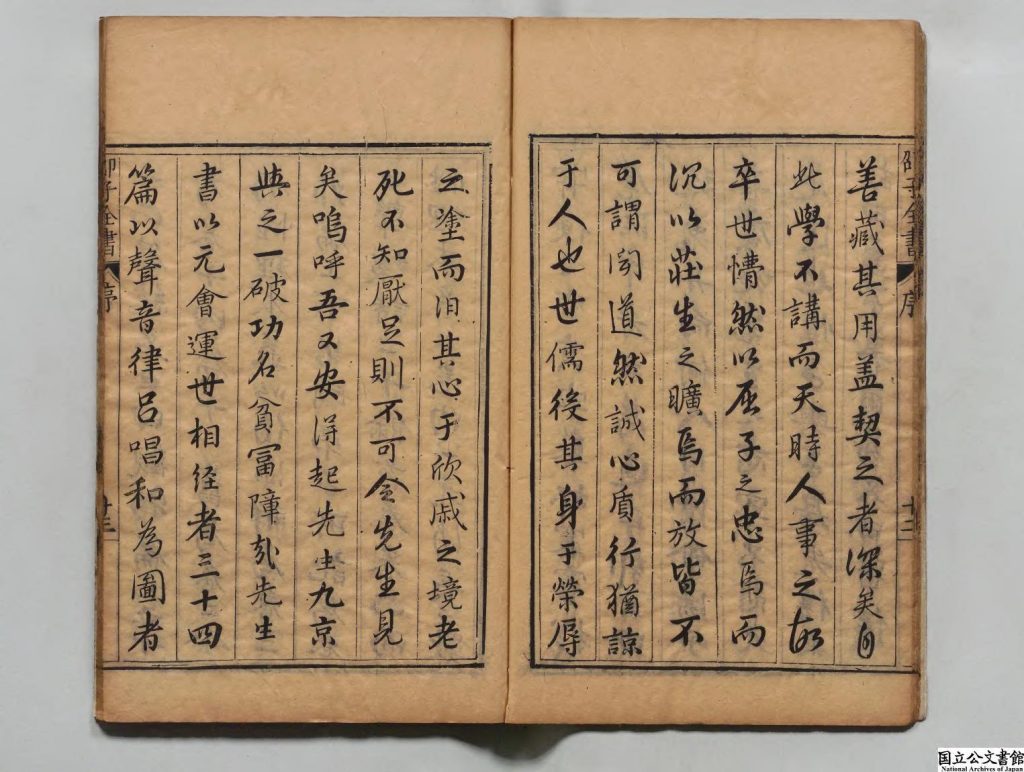 邵子全書 序 十二
善藏其用盖契之者深矣自
此學不講而天時人事之故
卒世懵然以屈子之忠焉而
沉以莊生之曠焉而放皆不
可謂聞道然誠心質行猶諒
于人也世儒役其身于榮辱
之塗而汩其心于欣戚之境老
死不知厭足則不可令先生見
矣嗚呼吾又安得起先生九京
與之一破功名貧富障哉先生
書以元會運世相経者三十四
篇以聲音律呂唱和為圖者
邵子全書 序 十三
国立公文書館
National Archives of Japan